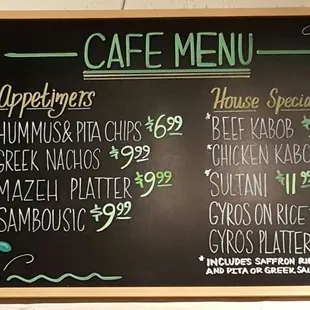 CAFE MENU
Appetimers
HUMMUS & PITA CHIPS $6.99
GREEK NACHOS $9.99
MAZEH PLATTER $9.99
SAMBOUSIC $9.99
House Specia
*BEEF KABOB $
*CHICKEN KABO
*SULTANI $11.99
GYROS ON RICE
GYROS PLATTER
*INCLUDES SAFFRON RI
AND PITA OR GREEK SAL